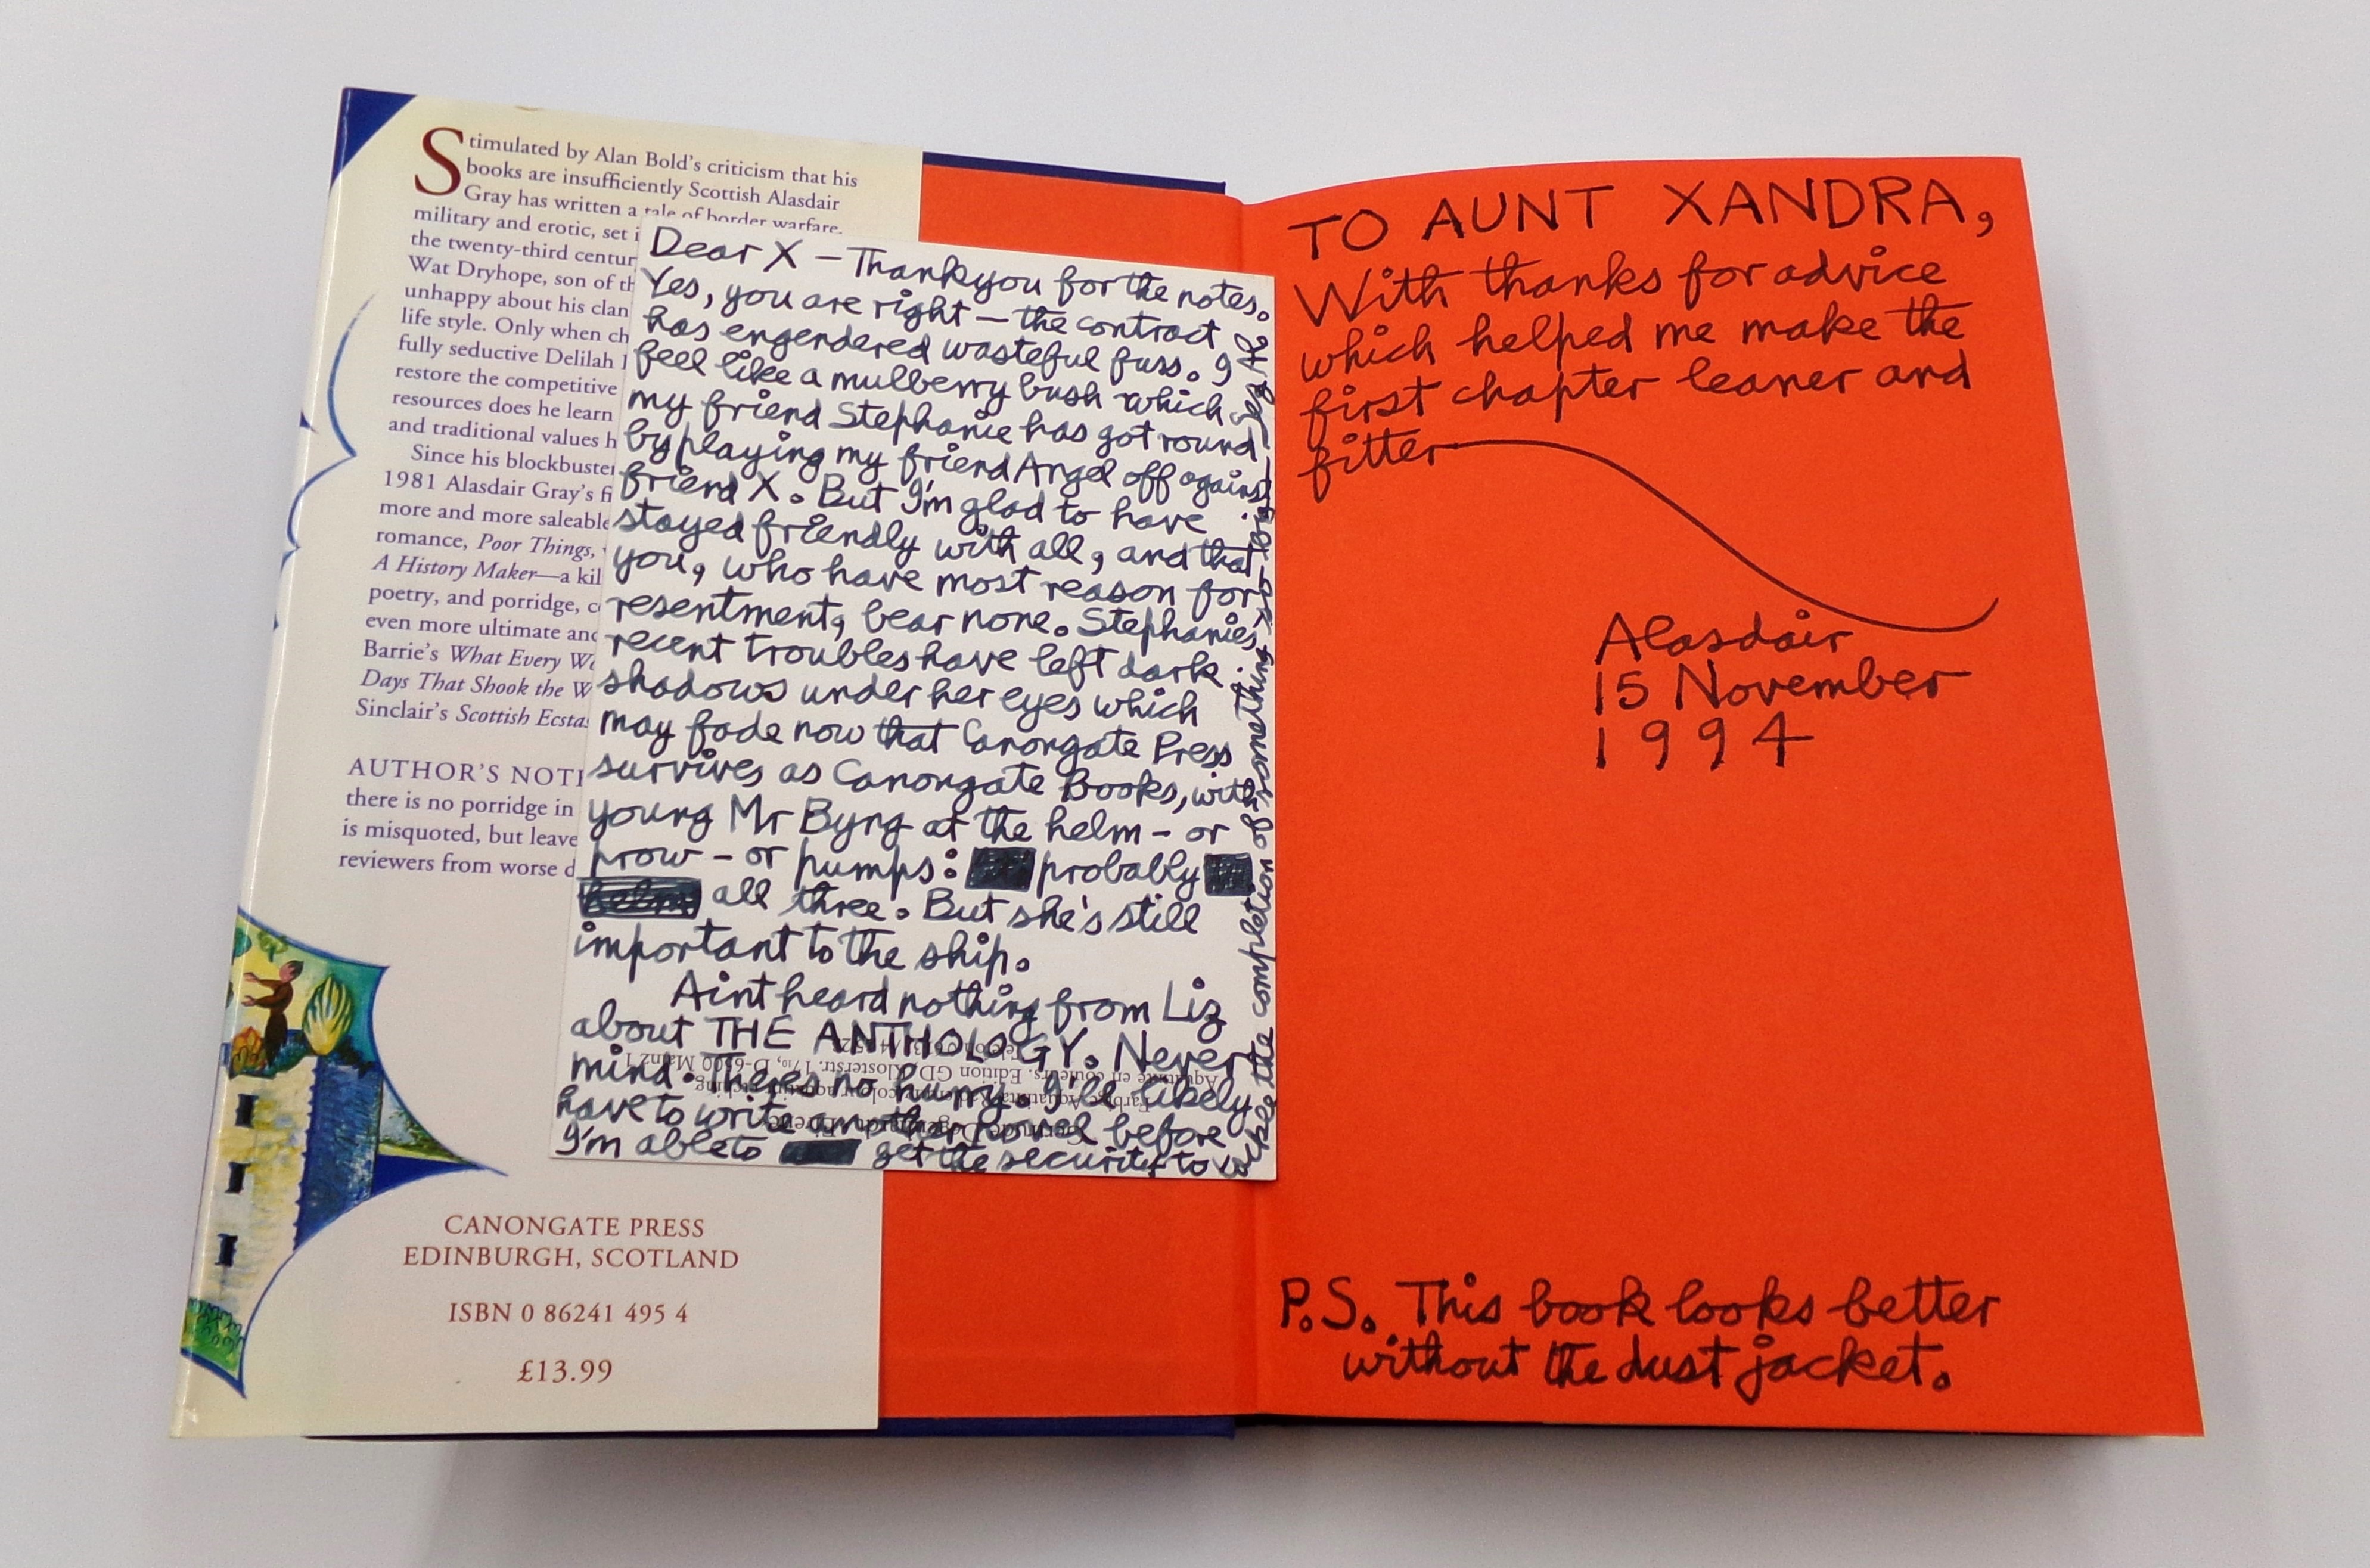 Stimulated by Alan Bold's criticism that his
books are insufficiently Scottish Alasdair
Gray has written a tale of border warfare,
military and erotic, set i
the twenty-third centur
Wat Dryhope, son of th
unhappy about his clan
life style. Only when ch
fully seductive Delilah
restore the competitive
resources does he learn
and traditional values h
Since his blockbuster
1981 Alasdair Gray's fi
more and more saleable
romance, Poor Things,
A History Maker—a kil
poetry, and porridge, c
even more ultimate and
Barrie's What Every W
Days That Shook the W
Sinclair's Scottish Ecsta
AUTHOR'S NOTE
there is no porridge in
is misquoted, but leave
reviewers from worse d
CANONGATE PRESS
EDINBURGH, SCOTLAND
ISBN 0 86241 495 4
£13.99
Dear X – Thankyou for the notes.
Yes, you are right – the contract
has engendered wasteful fuss. I
feel like a mulberry bush which
my friend Stephanie has got round
by playing my friend Angel off against
friend X. But I'm glad to have
stayed friendly with all, and that
you, who have most reason for
resentment, bear none. Stephanie's
recent troubles have left dark
shadows under her eyes which
may fade now that Canongate Press
survives as Canongate Books, with
young Mr Byng at the helm – or
prow – or pumps: probably
all three. But she's still
important to the ship.
Aint heard nothing from Liz
about THE ANTHOLOGY. Never
mind. There's no hurry. I'll likely
have to write another novel before
I'm able to get the security to
the completion of something so big
Aquatinte en couleurs. Edition GD, Klosterstr. D-6500 Mainz 1
TO AUNT XANDRA,
With thanks for advice
which helped me make the
first chapter leaner and
fitter
Alasdair
15 November
1994
P.S. This book looks better
without the dust jacket.